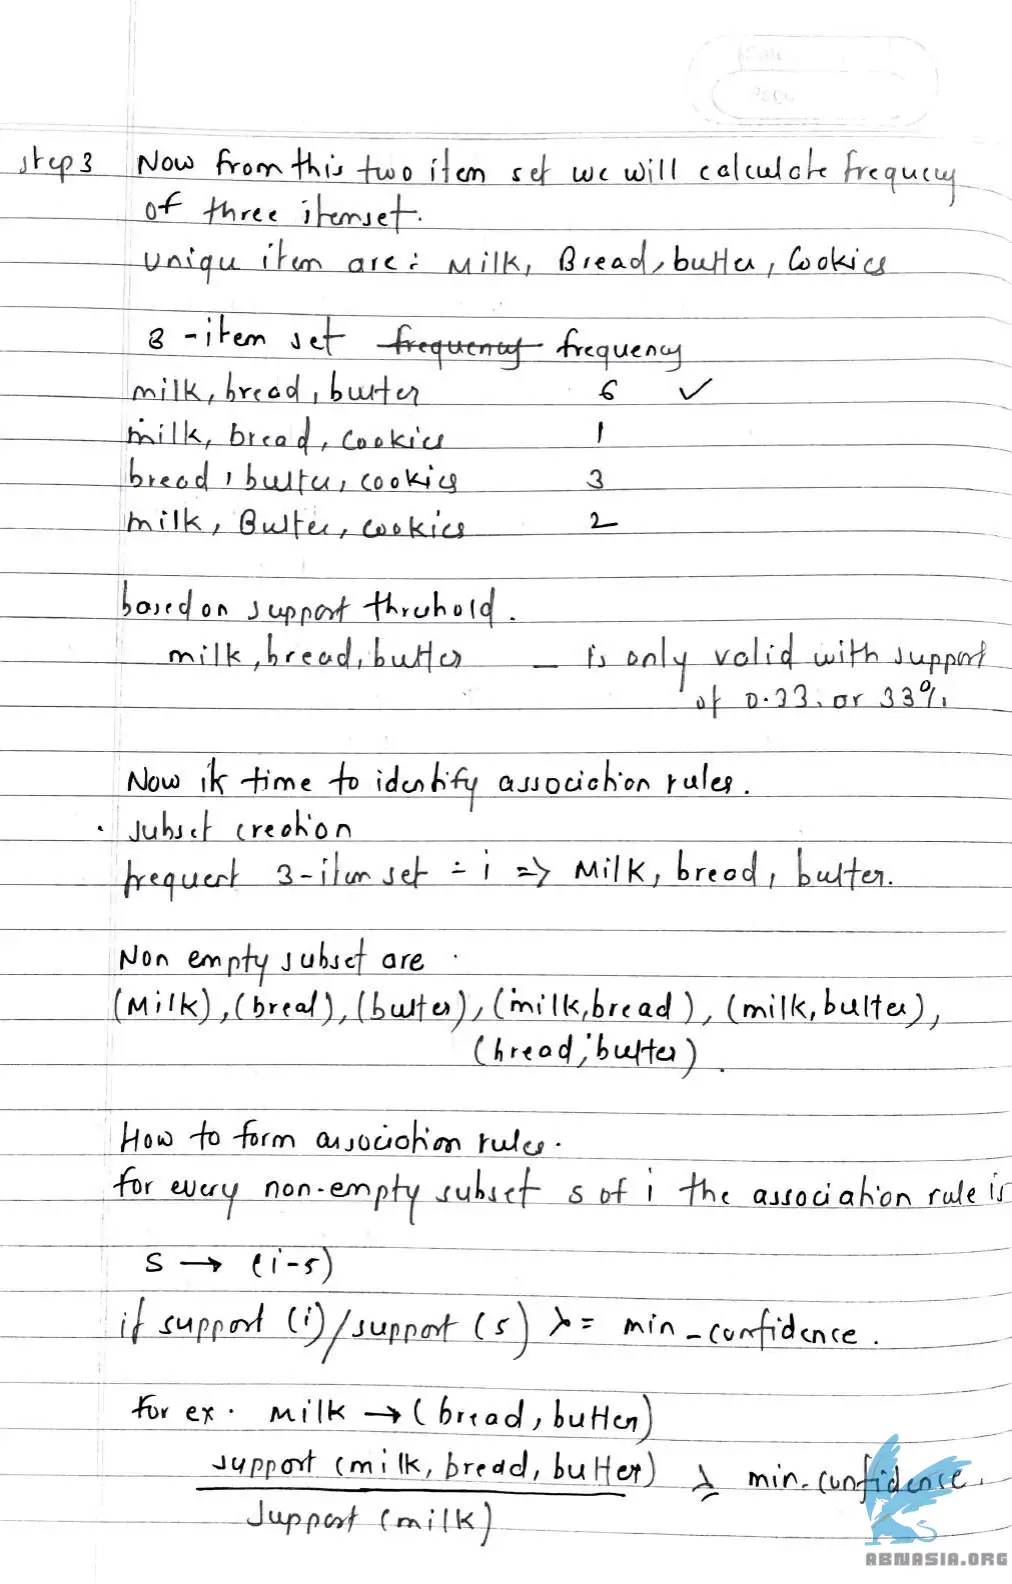 step 3 Now from this two item set we will calculate frequency
of three itemset.
Uniqu item are : Milk, Bread, butter, Cookies
3 - item set frequency frequency
milk, bread, butter 6 ✓
milk, bread, cookies 1
bread, butter, cookies 3
milk, Butter, cookies 2
based on support thrshold.
milk, bread, butter — is only valid with support
of 0.33. or 33%.
Now it time to identify association rules.
. subset creation
frequent 3-item set = i => Milk, bread, butter.
Non empty subset are
(Milk), (bread), (butter), (milk, bread), (milk, butter),
(bread, butter).
How to form association rules.
for every non-empty subset s of i the association rule is
S → (i-s)
if support (i) / support (s) >= min_confidence.
for ex. Milk → (bread, butter)
support (milk, bread, butter) ≥ min. confidence.
Support (milk)
ABNASIA.ORG